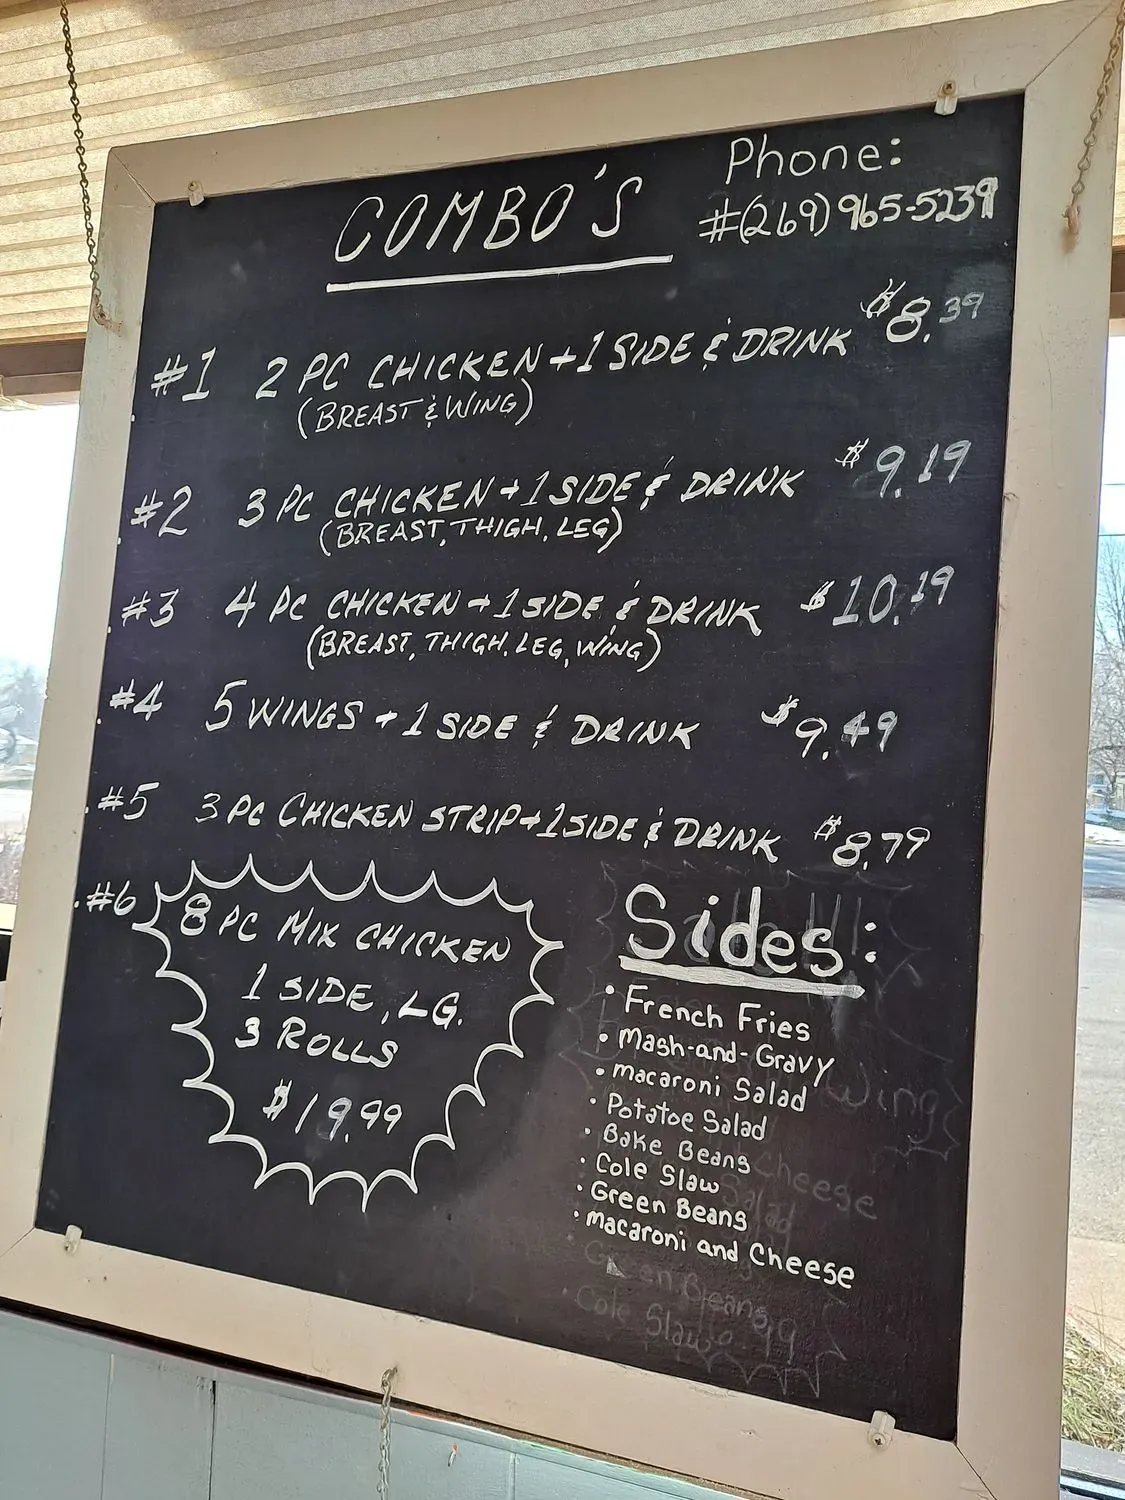 COMBO'S
Phone:
#(269)965-5239
#1 2 PC CHICKEN + 1 SIDE & DRINK $8.39
(BREAST & WING)
#2 3 PC CHICKEN + 1 SIDE & DRINK $9.19
(BREAST, THIGH, LEG)
#3 4 PC CHICKEN + 1 SIDE & DRINK $10.19
(BREAST, THIGH, LEG, WING)
#4 5 WINGS + 1 SIDE & DRINK $9.49
#5 3 PC CHICKEN STRIP + 1 SIDE & DRINK $8.79
#6 8 PC MIX CHICKEN
1 SIDE, LG.
3 ROLLS
$19.99
Sides:
• French Fries
• Mash-and-Gravy
• macaroni Salad
• Potatoe Salad
• Bake Beans
• Cole Slaw
• Green Beans
• macaroni and Cheese
Wing
Cheese
Salad
Green Beans
• Cole Slaw